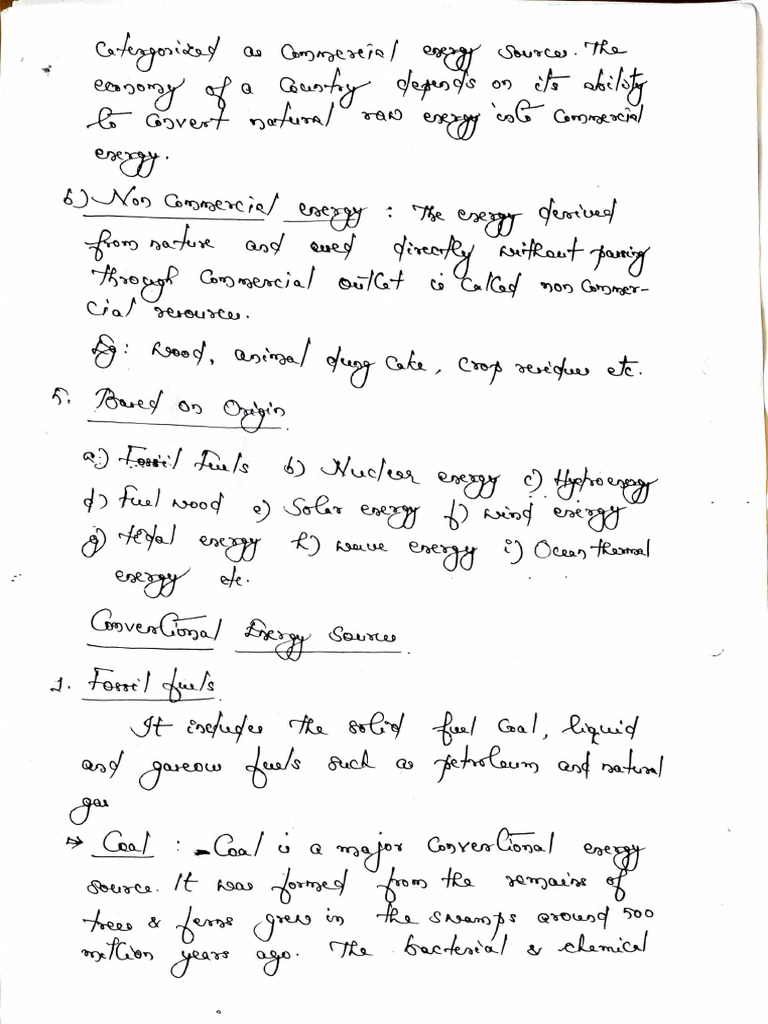 Catergorized as Commercial energy sources. The
economy of a Country depends on its ability
to convert natural raw energy into Commercial
energy.
b) Non Commercial energy : The energy derived
from nature and used directly without passing
through Commercial outlet is called non Commer-
cial resources.
Eg: Wood, animal dung cake, crop residues etc.
5. Based on Origin
a) Fossil fuels b) Nuclear energy c) Hydroenergy
d) Fuel wood e) Solar energy f) wind energy
g) tidal energy h) wave energy i) Ocean thermal
energy etc.
Conventional Energy Sources
1. Fossil fuels
It includes the solid fuel Coal, liquid
and gaseous fuels such as petroleum and natural
gas
⇒ Coal : - Coal is a major conventional energy
source. It was formed from the remains of
trees & ferns grew in the swamps around 500
million years ago. The bacterial & chemical